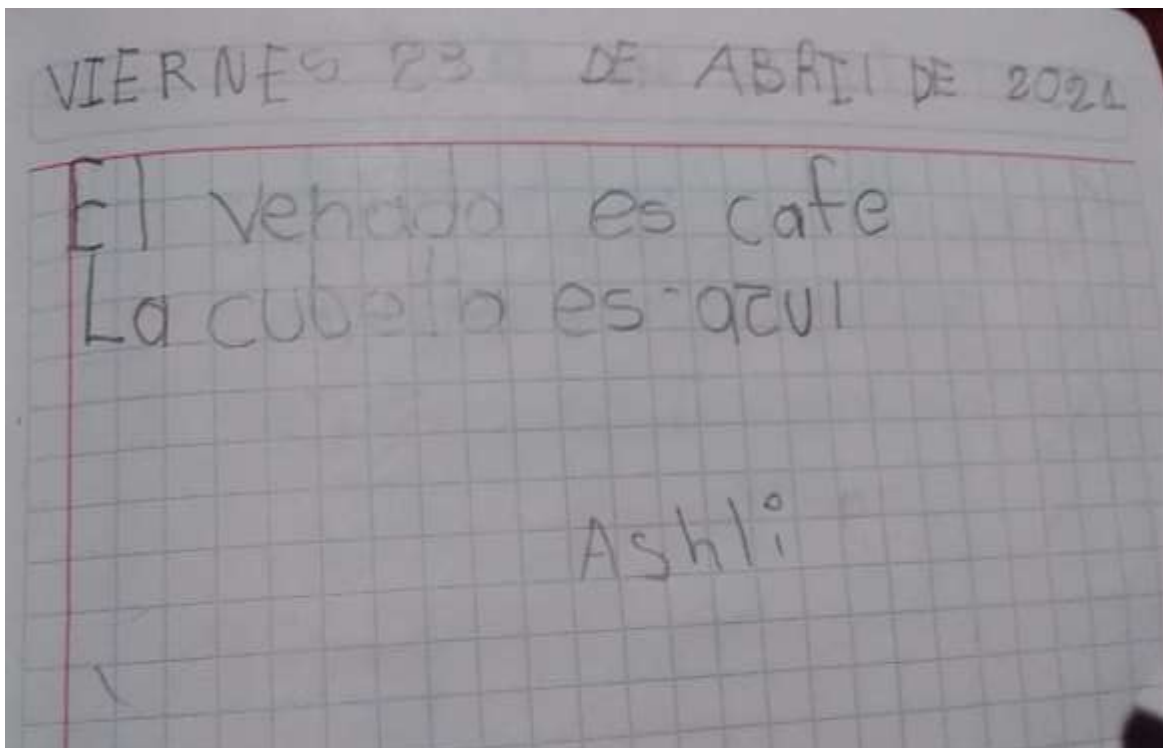 VIERNES 23 DE ABRIL DE 2021
El venado es cafe
La cubeta es azul
Ashli